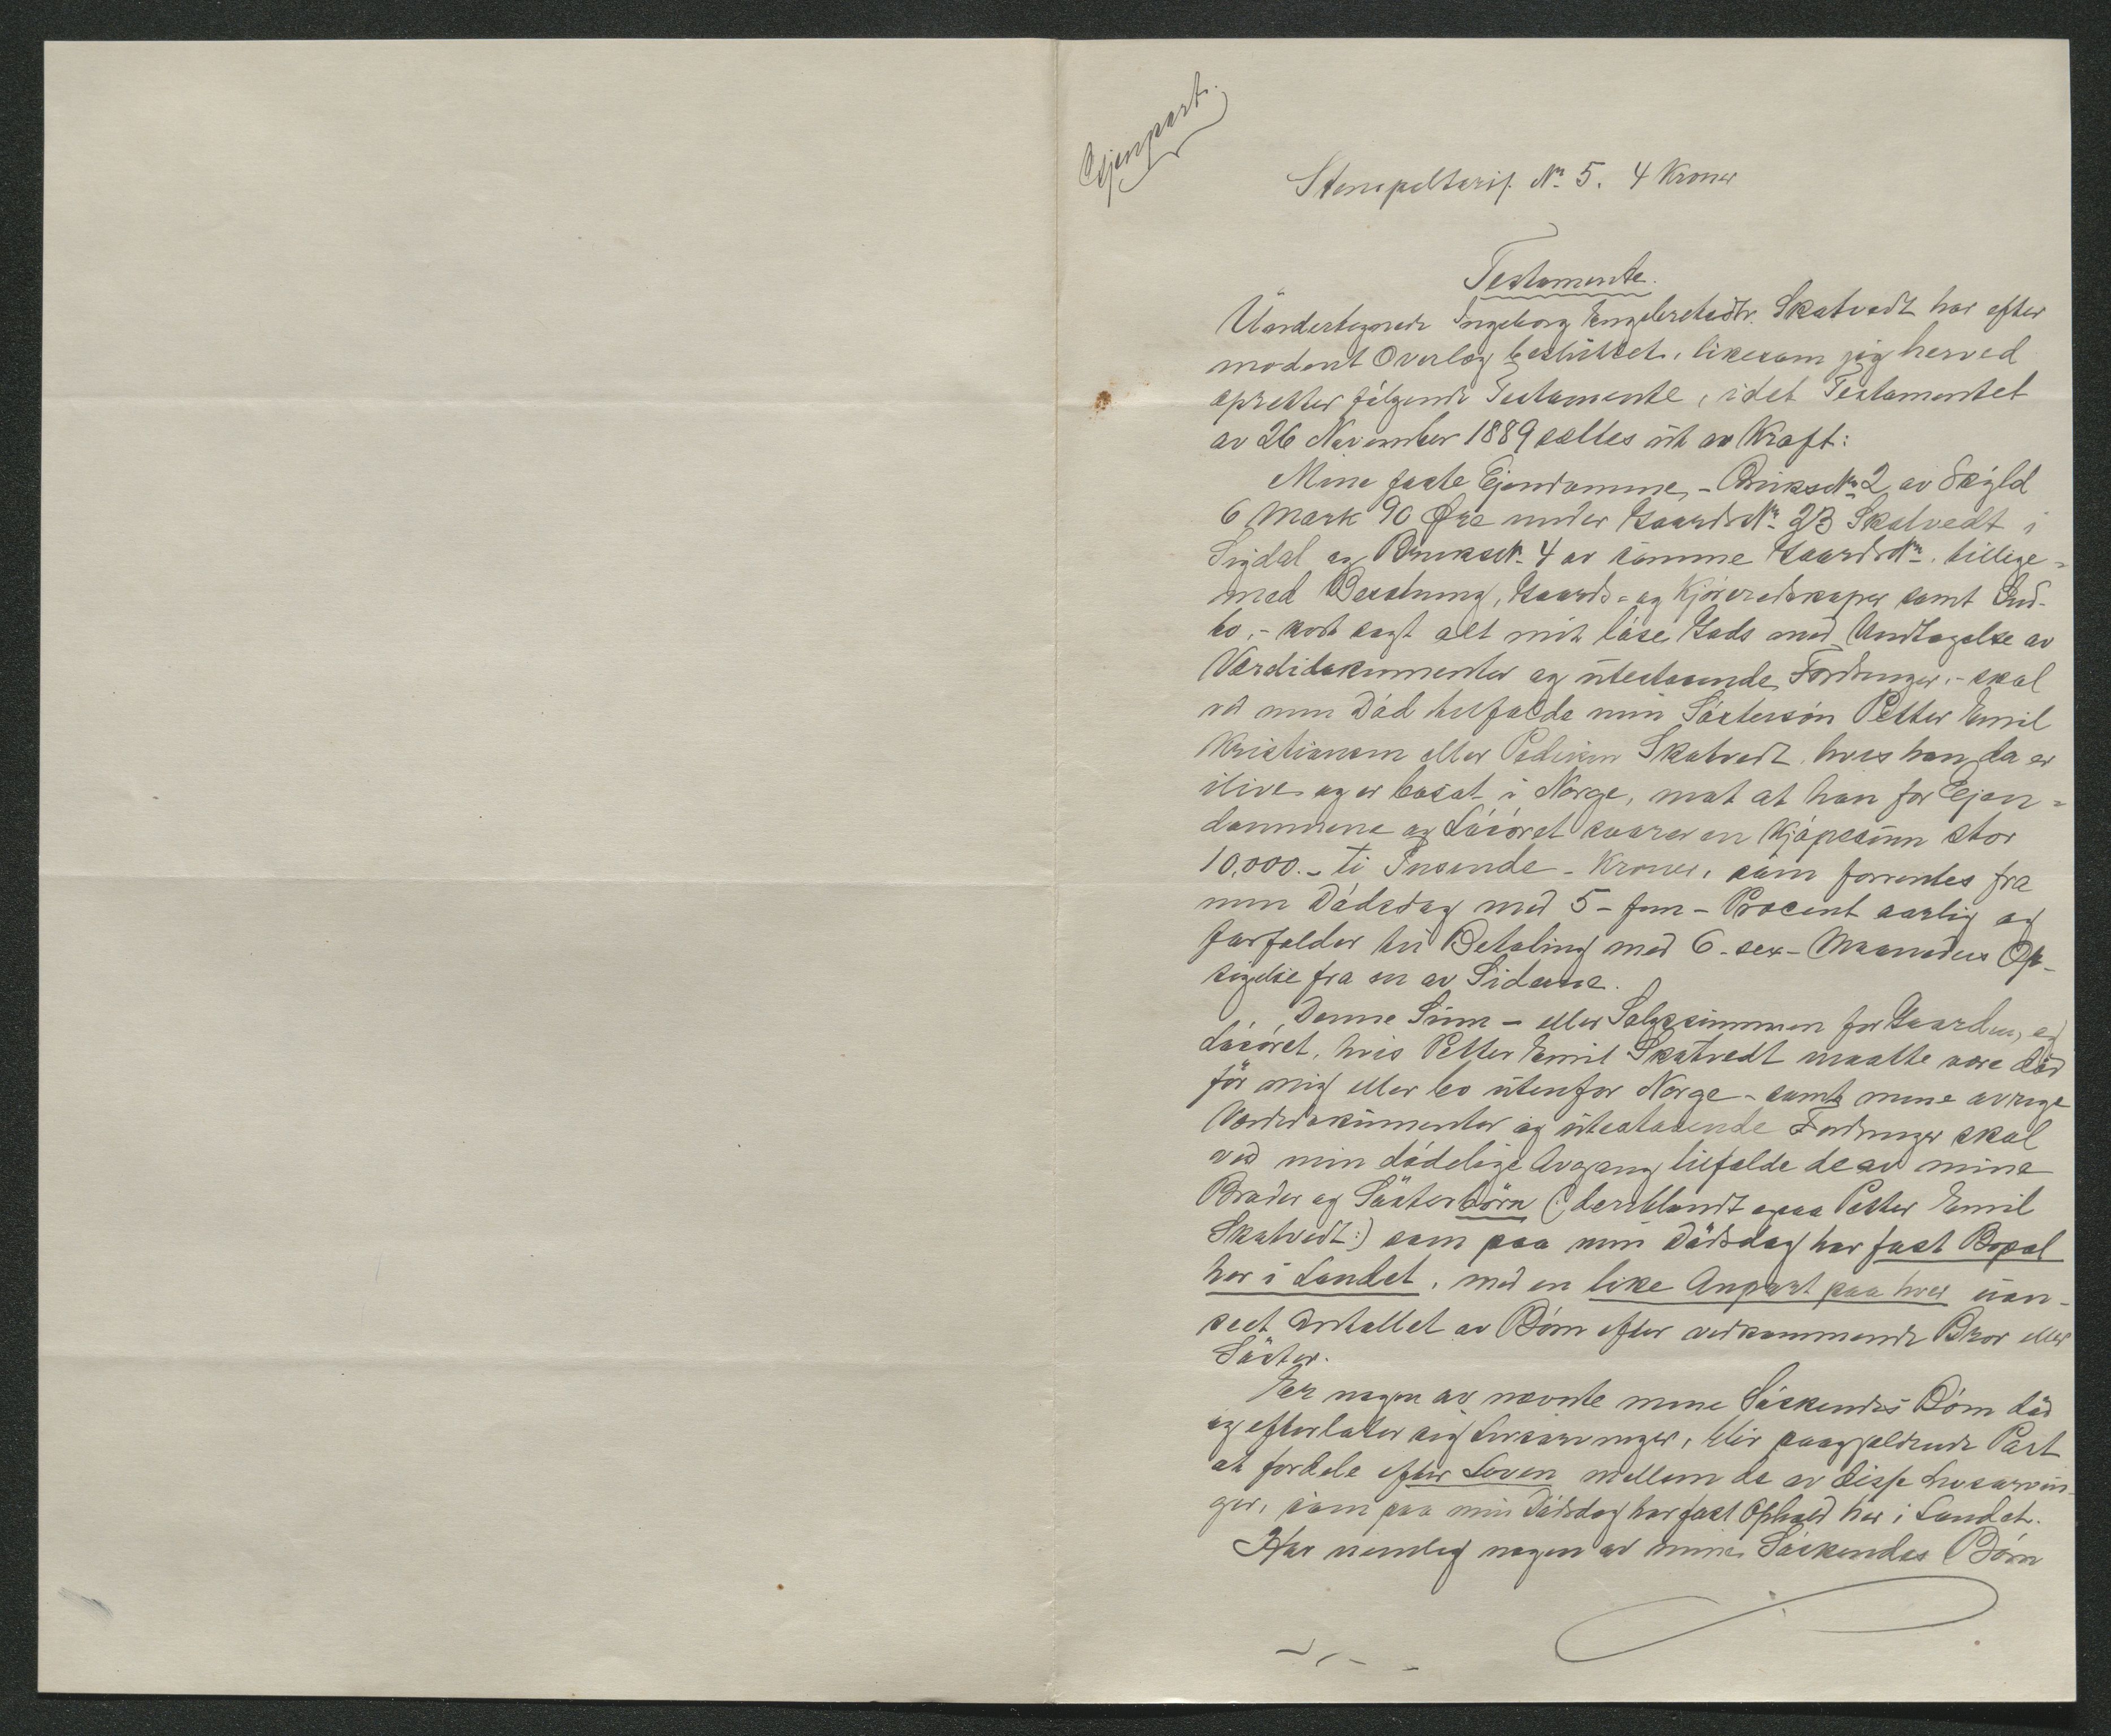 Gjenpart.
Stempeltarif. No. 5. 4 Kroner
Testamente.
Undertegnede Ingeborg Engebretsdtr. Skatvedt har efter
modent Overlæg besluttet, likesom jeg herved
opretter følgende Testamente, idet Testamentet
av 26 November 1889 sættes ut av Kraft:
Mine faste Ejendomme, - Bruksno. 2 av Skyld
6 Mark 90 Øre under Gaardsno. 23 Skatvedt i
Sigdal og Bruksno. 4 av samme Gaardsno. tillige-
med Besetning, Gaards- og Kjøreredskaper samt Ind-
bo, - kort sagt alt mit løse Gods med Undtagelse av
Værdidokumenter og utestaaende Fordringer, - skal
ved min Død tilfalde min Søstersøn Petter Emil
Kristiansen eller Pedersen Skatvedt, hvis han da er
ilive og er bosat i Norge, mot at han for Ejen-
dommene og Løsøret svarer en Kjøpesum stor
10,000.- ti Tusende - Kroner, som forrentes fra
min Dødsdag med 5 - fem - Procent aarlig og
forfalder til Betaling med 6 - sex - Maaneders Op-
sigelse fra en av Siderne.
Denne Sum - eller Salgssummen for Gaarden og
Løsøret, hvis Petter Emil Skatvedt maatte være død
før mig eller bo utenfor Norge - samt mine øvrige
Værdidokumenter og utestaaende Fordringer skal
ved min dødelige Avgang tilfalde de av mine
Brøder og Søsterbörn (: deriblandt ogsaa Petter Emil
Skatvedt :) som paa min Dødsdag har fast Bopæl
her i Landet, med en like Anpart paa hver uan-
seet Antallet av Børn efter vedkommende Bror eller
Søster.
Er nogen av nævnte mine Søskendes Børn død
og efterlater sig Livsarvinger, blir paagjældende Part
at fordele efter Loven mellem de av disse Livsarvin-
ger, som paa min Dødsdag har fast Ophold her i Landet.
Har nemlig nogen av mine Søskendes Børn